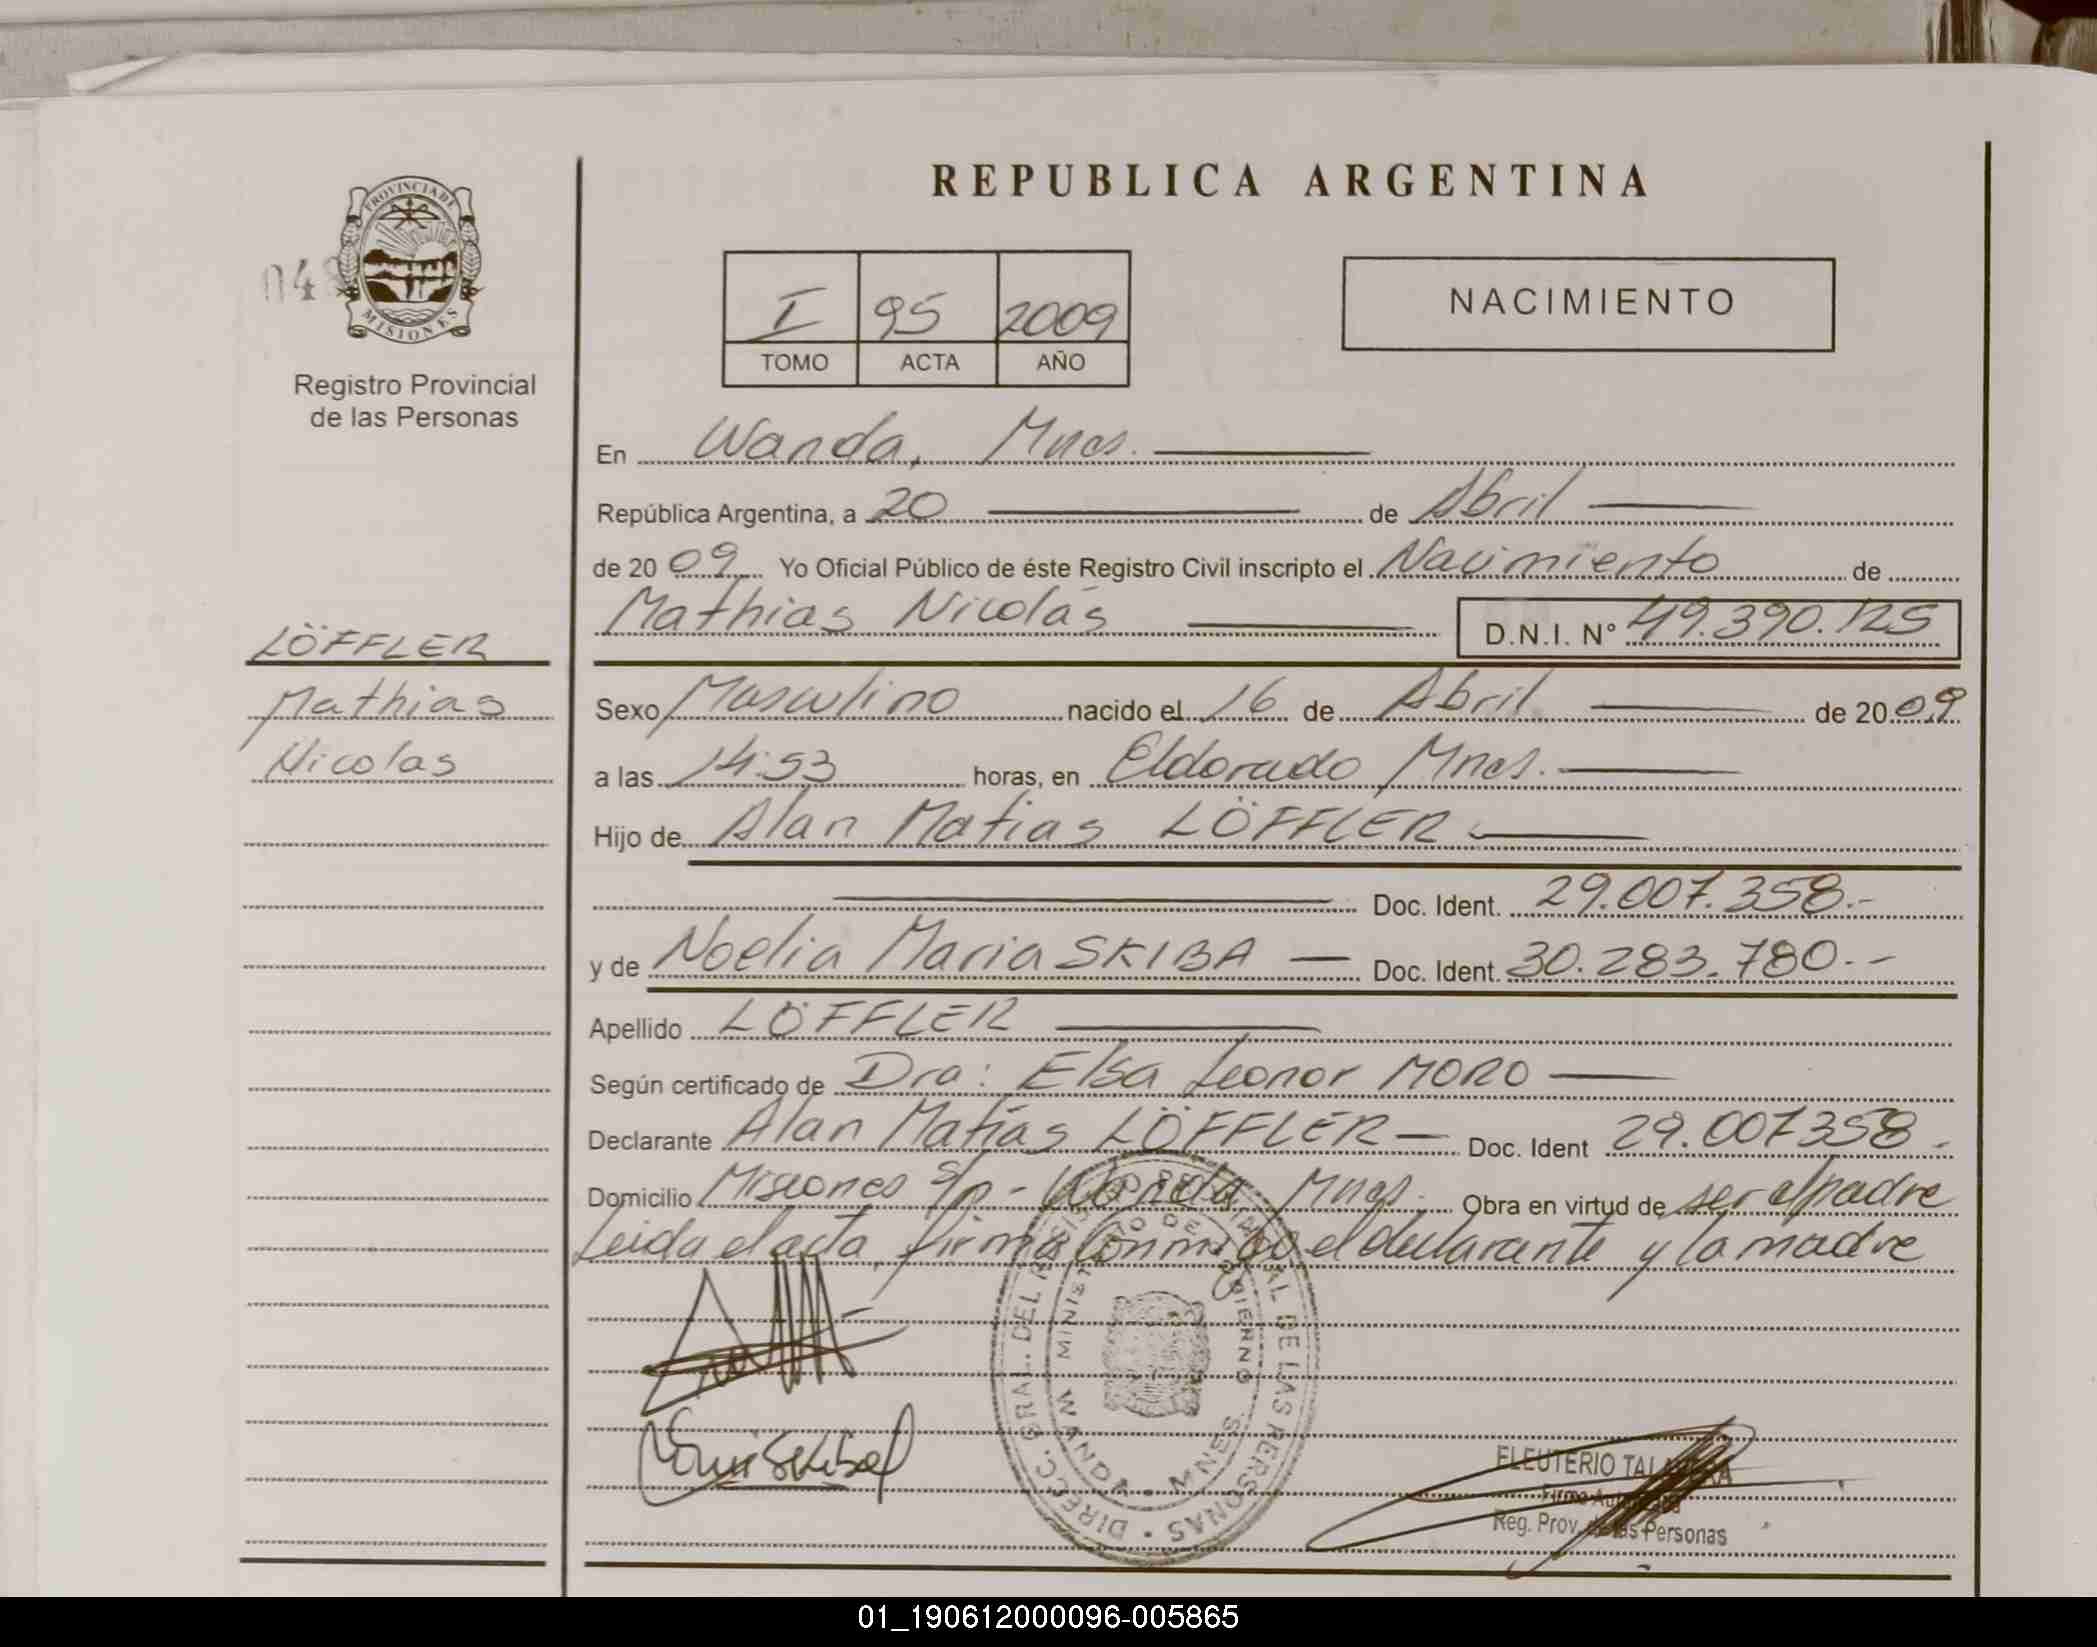 REPUBLICA ARGENTINA
PROVINCIA DE
MISIONES
048
Registro Provincial
de las Personas
I 95 2009
TOMO ACTA AÑO
NACIMIENTO
En Wanda, Mnes.
República Argentina, a 20 de Abril
de 2009 Yo Oficial Público de éste Registro Civil inscripto el Nacimiento de
Mathias Nicolás D.N.I. Nº 49.390.125
LÖFFLER
Mathias
Nicolas
Sexo Masculino nacido el 16 de Abril de 2009
a las 14:53 horas, en Eldorado Mnes.
Hijo de Alan Matias LÖFFLER
Doc. Ident. 29.007.358.-
y de Noelia Maria SKIBA — Doc. Ident. 30.283.780.--
Apellido LÖFFLER
Según certificado de Dra: Elsa Leonor MORO
Declarante Alan Matías LÖFFLER — Doc. Ident 29.007358.
Domicilio Misiones s/n - Wanda Mnes. Obra en virtud de ser el padre
Leida el acta, firma conmigo el declarante y la madre
DIRECC. GRAL. DEL REGISTRO PROVINCIAL DE LAS PERSONAS
MINISTERIO DE GOBIERNO
WANDA - MNES.
ELEUTERIO TALAVERA
Reg. Prov. de las Personas
01_190612000096-005865